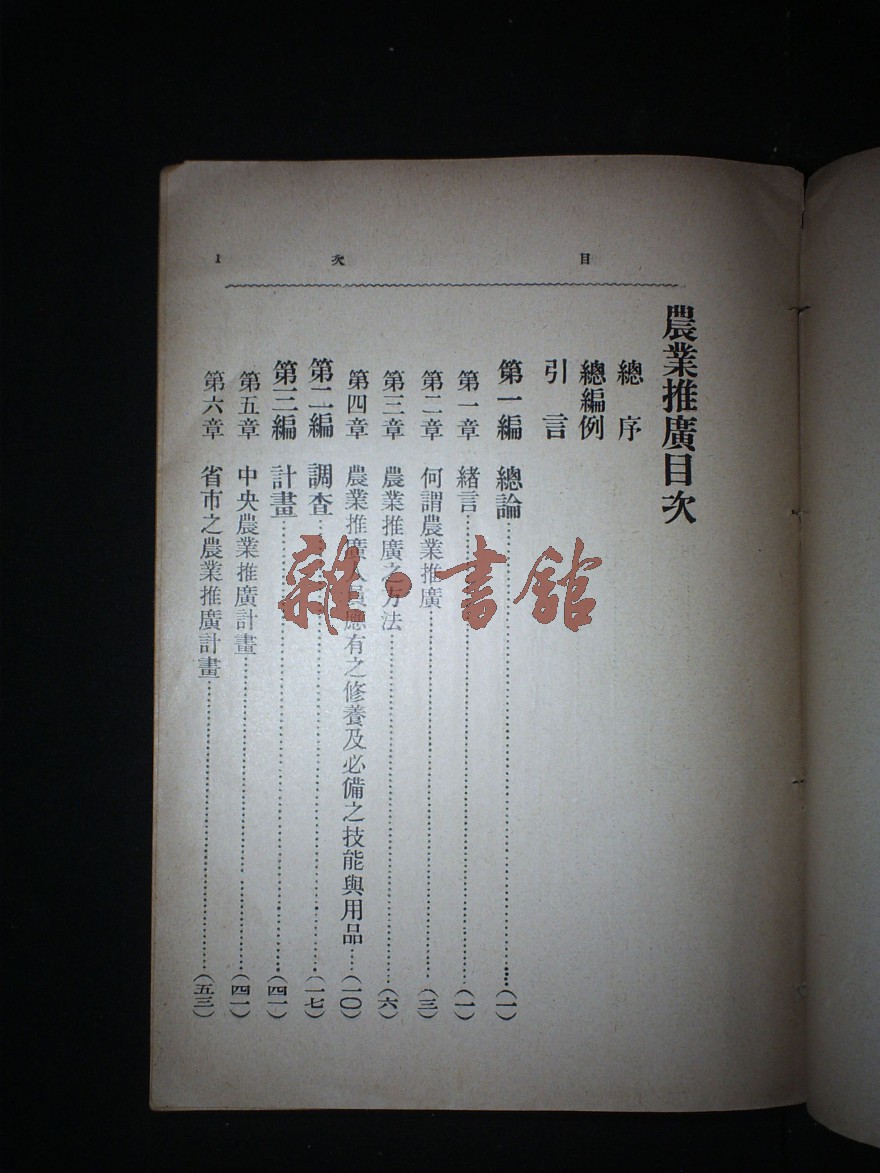 目次 1
農業推廣目次
總序
總編例
引言
第一編 總論……(一)
第一章 緒言……(一)
第二章 何謂農業推廣……(三)
第三章 農業推廣之方法……(六)
第四章 農業推廣人員應有之修養及必備之技能與用品……(一〇)
第二編 調查……(一七)
第三編 計畫……(四一)
第五章 中央農業推廣計畫……(四一)
第六章 省市之農業推廣計畫……(五三)
雜·書館